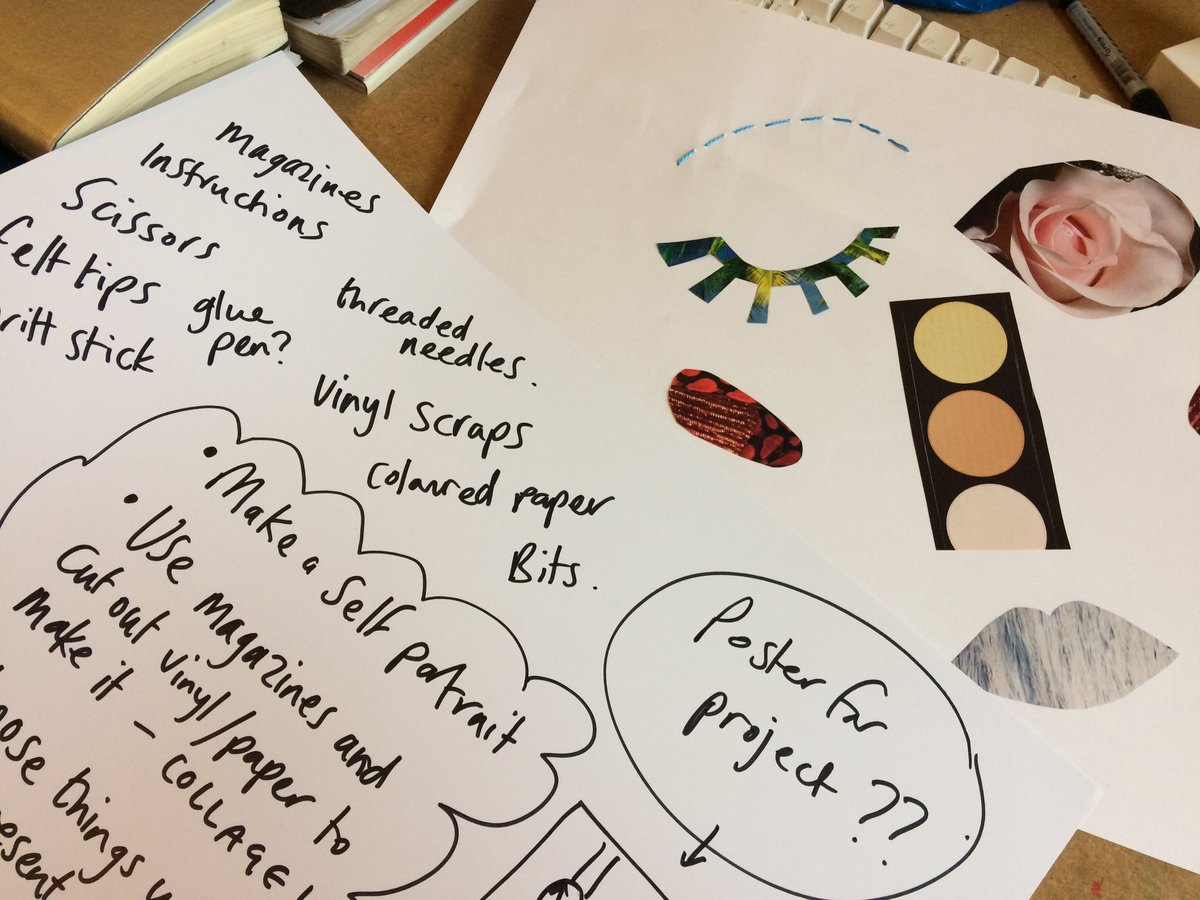 Magazines
Instructions
Scissors
felt tips
glue
pen?
threaded
needles.
stick
Vinyl Scraps
Coloured paper
Bits.
• Make a self portrait
• Use magazines and
Cut out vinyl/paper to
make it - COLLAGE
things
Poster for
project ??